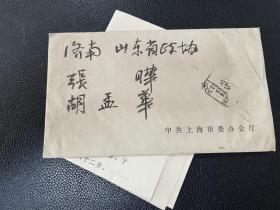 济南 山东省政协
張 曄
胡孟華
中共上海市委办公厅